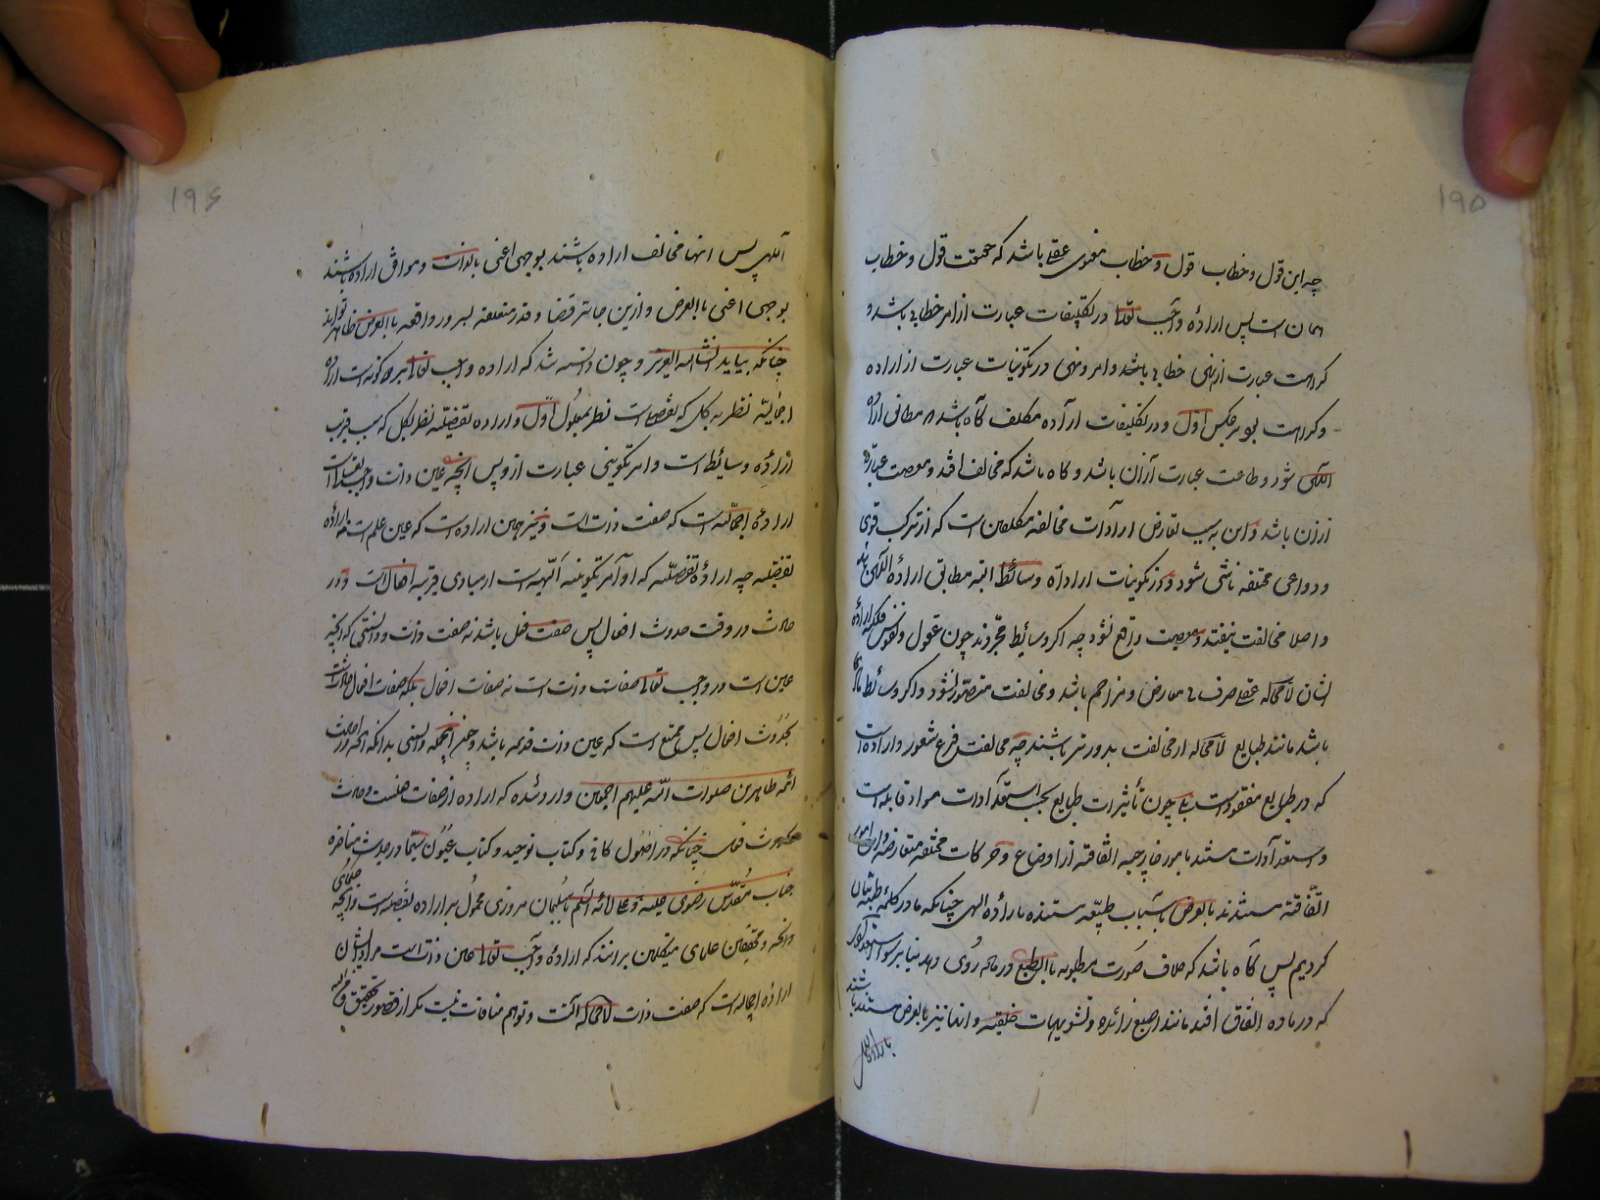 ۱۹۵
چه این قول و خطاب قول و خطاب معنوی عقلی باشد که حقیقت قول و خطاب
همان است پس ارادهٔ واجب تعالی در تکلیفات عبارت از امر خطابی باشد و
کراهت عبارت از نهی خطابی باشد و امر و نهی در تکوینیات عبارت از اراده
و کراهت بود بر عکس اول و در تکلیفات ارادهٔ مکلف گاه باشد که مطابق ارادهٔ
الهی شود و طاعت عبارت از آن باشد و گاه باشد که مخالف افتد و معصیت عبارت
از آن باشد و این به سبب تعارض ارادات مخالفه مکلفین است که از ترکب قوی
و دواعی مختلفه ناشی شود و در تکوینیات ارادهٔ وسائط البته مطابق ارادهٔ الهی باشد
و اصلا مخالفت نیفتد و معصیت واقع نشود چه اگر وسائط مجردند چون عقول و نفوس فلکیه ارادهٔ
ایشان لامحاله عقلی صرف بی معارض و مزاحم باشد و مخالفت متصور نشود و اگر وسائط
باشد مانند طبایع لامحاله از مخالفت بدورتر باشند چه مخالفت فرع شعور و اراده است
که در طبایع مفقود است بلی چون تأثیرات طبایع بحسب استعدادات مواد قابله است
و استعدادات مستند بامور خارجیه اتفاقیه از اوضاع و حرکات مختلفه متعارضه و این امور
اتفاقیه مستندند بالعرض باسباب طبیعیه مستنده بارادهٔ الهی چنانکه ما در کلمهٔ طیبه بیان
کردیم پس گاه باشد که خلاف صورت مطلوبه بالطبع در ماده روی دهد بنا بر سوء استعداد
که در ماده اتفاق افتد مانند اصبع زائده و تشویهات خلقیه و انها نیز بالعرض مستند باشند
بارادهٔ
۱۹۶
الهی پس انها مخالف اراده باشند بوجهی اعنی بالذات و موافق اراده باشند
بوجهی اعنی بالعرض و ازین جا سر قضا و قدر متعلقه بشرور واقعه بالعرض ظاهر تواند
چنانکه بیاید انشاالله العزیز و چون دانسته شد که اراده واجب تعالی بر دو گونه است ارادهٔ
اجمالیه نظر به کل که تفصیلست نظر بمعلول اول و اراده تفصیلیه نظر بکل که سبب قریب
ارادهٔ وسائط است و امر تکوینی عبارت از و پس انچه عین ذات واجب تعالی است
ارادهٔ اجمالیه است که صفت ذات است و نیز همین اراده است که عین علم است نه ارادهٔ
تفصیلیه چه ارادهٔ تفصیلیه که اوامر تکوینیه الهیه است از مبادی قریبه افعال است و در
حادث در وقت حدوث افعال پس صفت فعل باشد نه صفت ذات و دانستی که انچه
عین است در واجب تعالی صفات ذات است نه صفات افعال بلکه صفات افعال حادث است
بحدوث افعال پس ممتنع است که عین ذات قدیمه باشد و چون این جمله دانستی بدانکه انچه در احادیث
ائمه طاهرین صلوات الله علیهم اجمعین وارد شده که اراده از صفات فعلست و حادث
بحدوث فعل چنانکه در اصول کافی و کتاب توحید و کتاب عیون سیما در حدیث مناظره
جناب مقدس رضوی علیه و علی آبائه السلم با سلیمان مروزی محمول بر اراده تفصیلیه است و انچه
حکمای
و انچه و محققین علمای متکلمین برانند که ارادهٔ واجب تعالی عین ذات است مراد ایشان
ارادهٔ اجمالیه است که صفت ذات لامحاله اوست و توهم منافات نیست مگر از قصور تحقیق